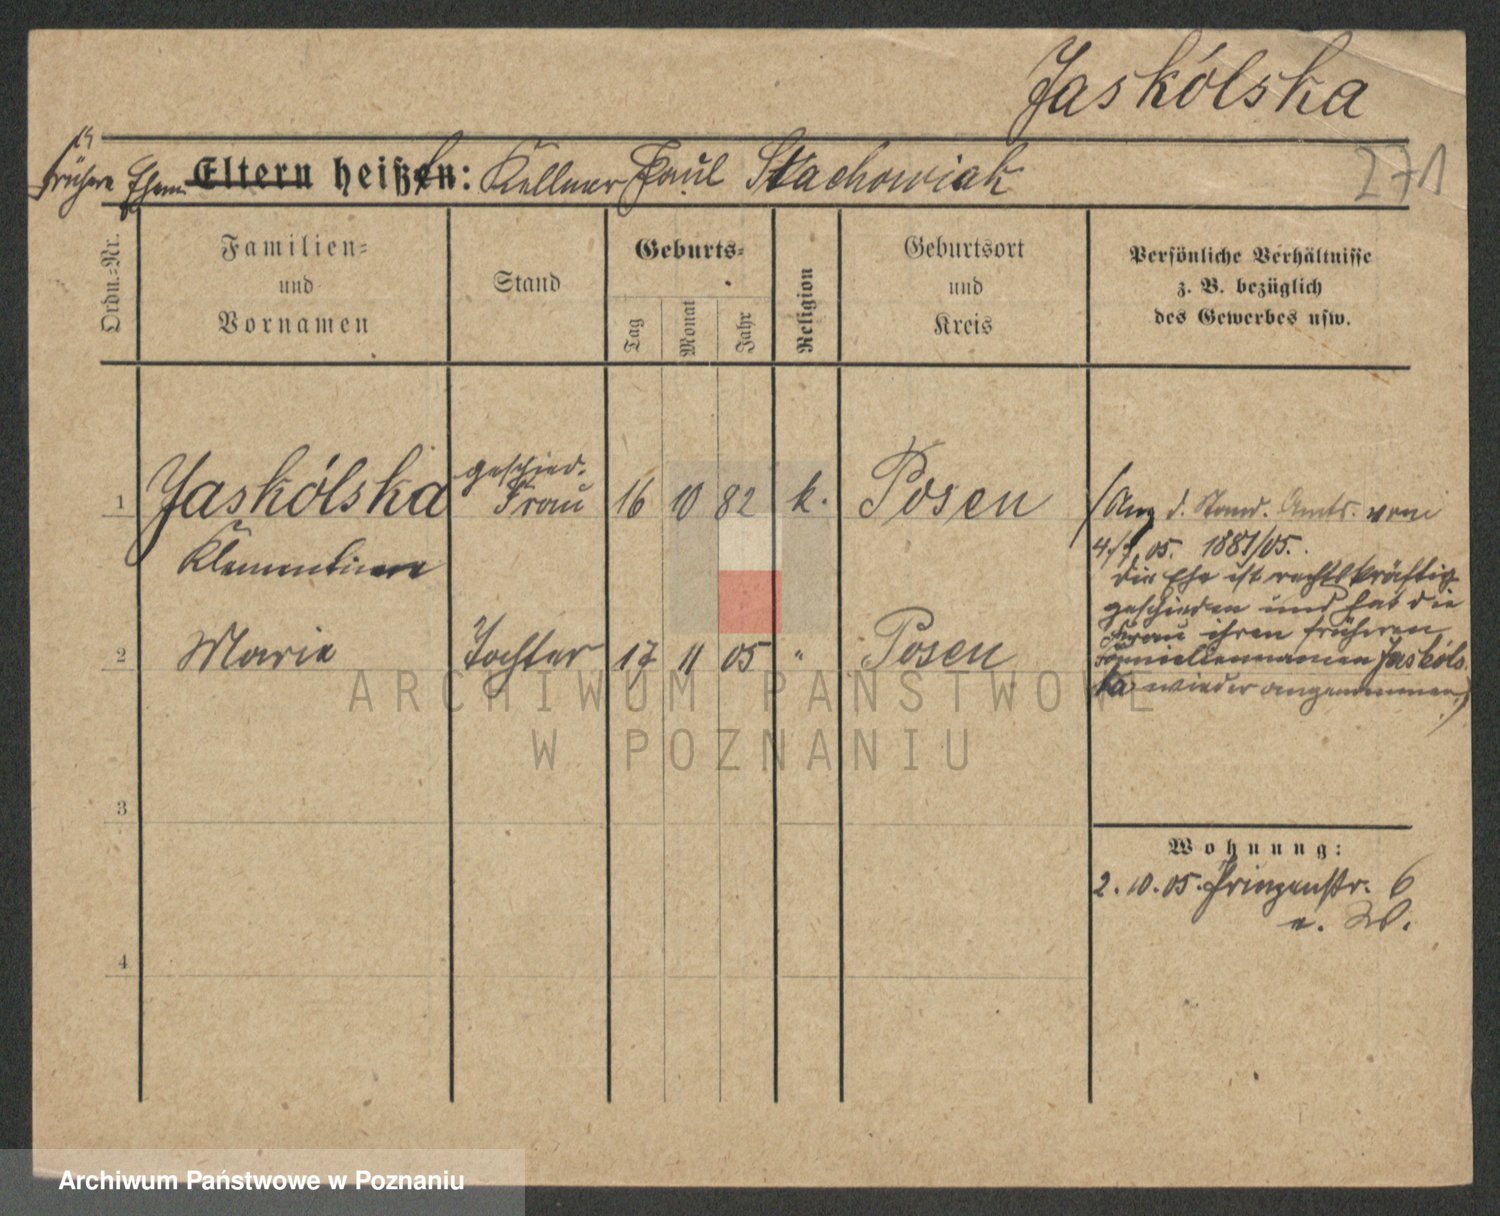 Jaskólska
271
frühere Ehem. Eltern heißen: Kellner Paul Stachowiak
Ordn.-Nr.
Familien-
und
Vornamen
Stand
Geburts-
Tag
Monat
Jahr
Religion
Geburtsort
und
Kreis
Persönliche Verhältnisse
z. B. bezüglich
des Gewerbes usw.
1 Jaskólska geschied. Frau 16 10 82 k. Posen
Klementine
2 Marie Tochter 17 11 05 " Posen
3
4
d. Stand. Amts. vom
05. 1881/05.
die Ehe ist rechtskräftig
geschieden und hat die
Frau ihren früheren
Familiennamen Jaskóls
ka wieder angenommen)
Wohnung:
2.10.05. Prinzenstr. 6
e. W.
ARCHIWUM PAŃSTWOWE
W POZNANIU
Archiwum Państwowe w Poznaniu